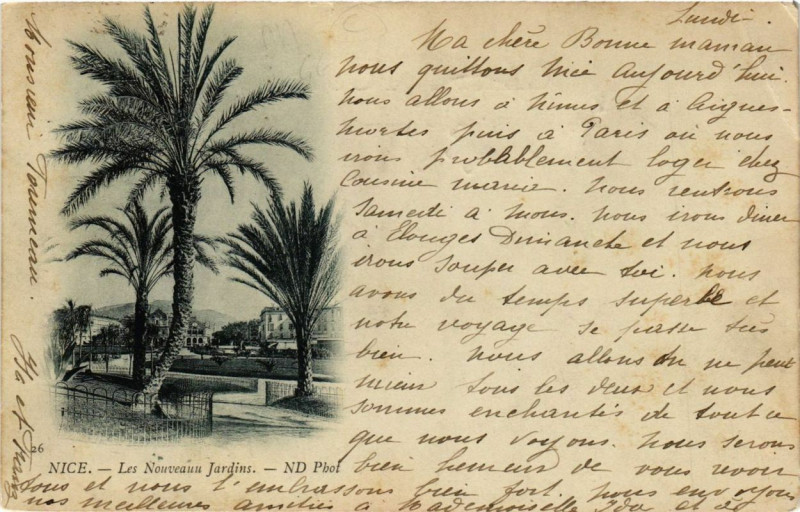 Lundi.
Ma chère Bonne maman
nous quittons Nice aujourd'hui.
nous allons à Nîmes et à Aigues-
mortes puis à Paris où nous
irons problablement loger chez
Cousine marie. nous rentrons
Samedi à mons. nous irons diner
à Elouges Dimanche et nous
irons souper avec toi. nous
avons du temps superbe et
notre voyage se passe très
bien. nous allons on ne peut
mieux tous les deux et nous
sommes enchantés de tout ce
que nous voyons. nous serons
bien heureux de vous revoir
tous et nous t'embrassons bien fort. nous envoyons
nos meilleures amitiés à Mademoiselle Ida et à
Monsieur Tourneau.
et
26
NICE. — Les Nouveauu Jardins. — ND Phot